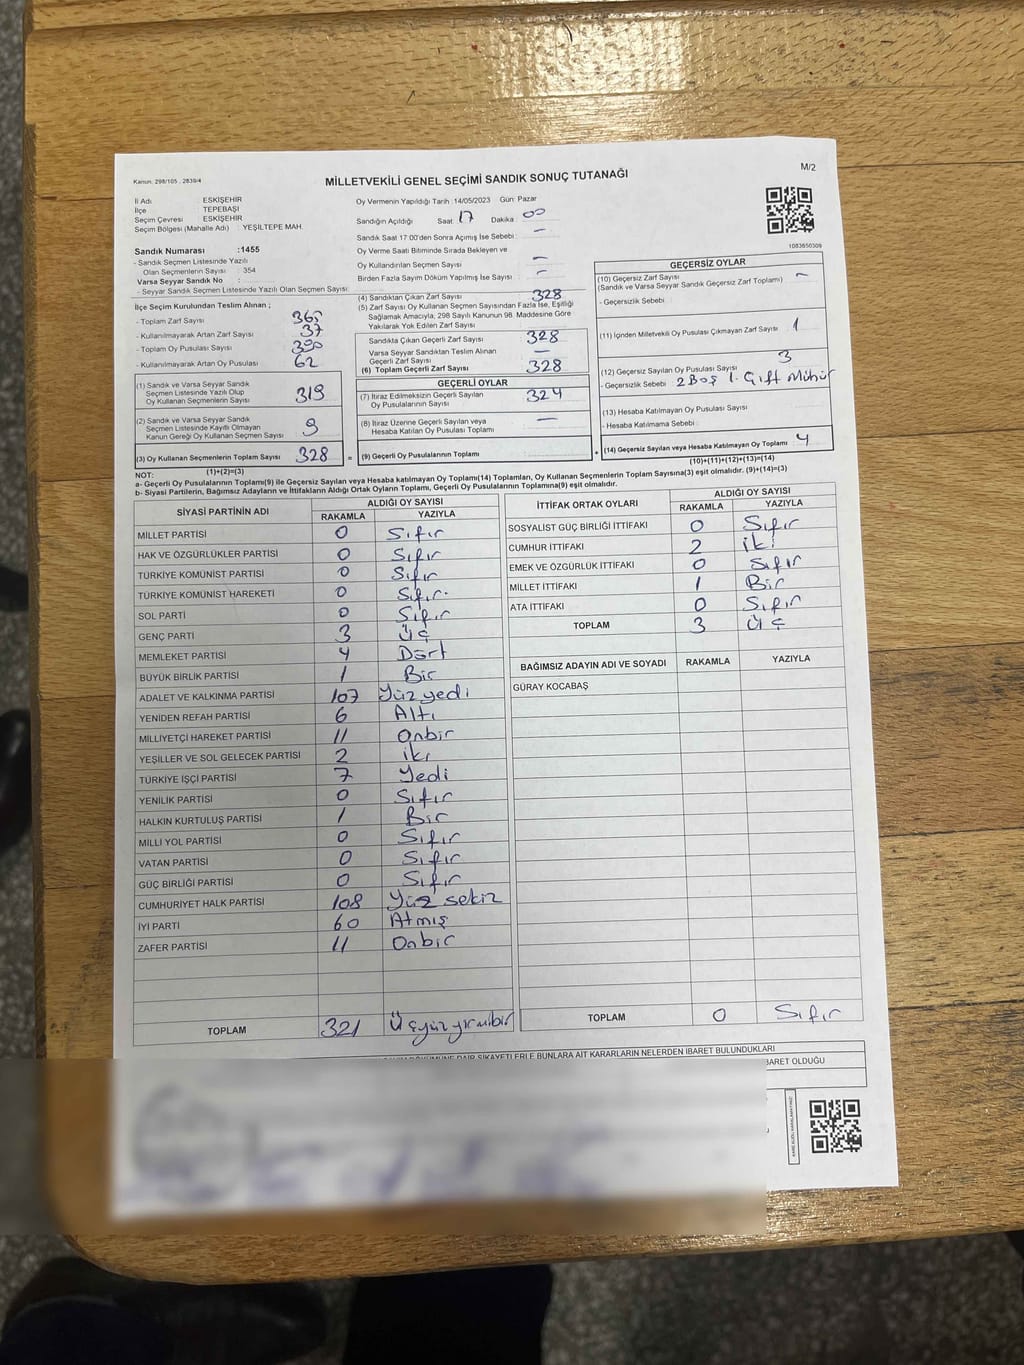 Kanun: 298/105 , 2839/4
MİLLETVEKİLİ GENEL SEÇİMİ SANDIK SONUÇ TUTANAĞI
M/2
İl Adı : ESKİŞEHİR
İlçe : TEPEBAŞI
Seçim Çevresi : ESKİŞEHİR
Seçim Bölgesi (Mahalle Adı) : YEŞİLTEPE MAH.
Sandık Numarası :1455
- Sandık Seçmen Listesinde Yazılı
Olan Seçmenlerin Sayısı : 354
Varsa Seyyar Sandık No :
- Seyyar Sandık Seçmen Listesinde Yazılı Olan Seçmen Sayısı:
İlçe Seçim Kurulundan Teslim Alınan ;
- Toplam Zarf Sayısı 365
- Kullanılmayarak Artan Zarf Sayısı 37
- Toplam Oy Pusulası Sayısı 390
- Kullanılmayarak Artan Oy Pusulası 62
(1) Sandık ve Varsa Seyyar Sandık
Seçmen Listesinde Yazılı Olup
Oy Kullanan Seçmenlerin Sayısı 319
(2) Sandık ve Varsa Seyyar Sandık
Seçmen Listesinde Kayıtlı Olmayan
Kanun Gereği Oy Kullanan Seçmen Sayısı 9
(3) Oy Kullanan Seçmenlerin Toplam Sayısı 328 =
(1)+(2)=(3)
Oy Vermenin Yapıldığı Tarih :14/05/2023 Gün: Pazar
Sandığın Açıldığı Saat: 17 Dakika : 00
Sandık Saat 17:00'den Sonra Açımış İse Sebebi : -
Oy Verme Saati Bitiminde Sırada Bekleyen ve
Oy Kullandırılan Seçmen Sayısı : -
Birden Fazla Sayım Döküm Yapılmış İse Sayısı : -
(4) Sandıktan Çıkan Zarf Sayısı 328
(5) Zarf Sayısı Oy Kullanan Seçmen Sayısından Fazla İse, Eşitliği
Sağlamak Amacıyla, 298 Sayılı Kanunun 98. Maddesine Göre
Yakılarak Yok Edilen Zarf Sayısı
Sandıkta Çıkan Geçerli Zarf Sayısı 328
Varsa Seyyar Sandıktan Teslim Alınan
Geçerli Zarf Sayısı -
(6) Toplam Geçerli Zarf Sayısı 328
GEÇERLİ OYLAR
(7) İtiraz Edilmeksizin Geçerli Sayılan
Oy Pusulalarının Sayısı 324
(8) İtiraz Üzerine Geçerli Sayılan veya
Hesaba Katılan Oy Pusulası Toplamı -
(9) Geçerli Oy Pusulalarının Toplamı +
1083650309
GEÇERSİZ OYLAR
(10) Geçersiz Zarf Sayısı -
(Sandık ve Varsa Seyyar Sandık Geçersiz Zarf Toplamı)
- Geçersizlik Sebebi :
(11) İçinden Milletvekili Oy Pusulası Çıkmayan Zarf Sayısı 1
(12) Geçersiz Sayılan Oy Pusulası Sayısı 3
- Geçersizlik Sebebi : 2 Boş 1. Çift Mühür
(13) Hesaba Katılmayan Oy Pusulası Sayısı
- Hesaba Katılmama Sebebi :
(14) Geçersiz Sayılan veya Hesaba Katılmayan Oy Toplamı 4
(10)+(11)+(12)+(13)=(14)
NOT:
a- Geçerli Oy Pusulalarının Toplamı(9) ile Geçersiz Sayılan veya Hesaba katılmayan Oy Toplamı(14) Toplamları, Oy Kullanan Seçmenlerin Toplam Sayısına(3) eşit olmalıdır. (9)+(14)=(3)
b- Siyasi Partilerin, Bağımsız Adayların ve İttifakların Aldığı Ortak Oyların Toplamı, Geçerli Oy Pusulalarının Toplamına(9) eşit olmalıdır.
SİYASİ PARTİNİN ADI ALDIĞI OY SAYISI
RAKAMLA YAZIYLA
MİLLET PARTİSİ 0 Sıfır
HAK VE ÖZGÜRLÜKLER PARTİSİ 0 Sıfır
TÜRKİYE KOMÜNİST PARTİSİ 0 Sıfır
TÜRKİYE KOMÜNİST HAREKETİ 0 Sıfır.
SOL PARTİ 0 Sıfır
GENÇ PARTİ 3 Üç
MEMLEKET PARTİSİ 4 Dört
BÜYÜK BİRLİK PARTİSİ 1 Bir
ADALET VE KALKINMA PARTİSİ 107 Yüz yedi
YENİDEN REFAH PARTİSİ 6 Altı
MİLLİYETÇİ HAREKET PARTİSİ 11 Onbir
YEŞİLLER VE SOL GELECEK PARTİSİ 2 iki
TÜRKİYE İŞÇİ PARTİSİ 7 Yedi
YENİLİK PARTİSİ 0 Sıfır
HALKIN KURTULUŞ PARTİSİ 1 Bir
MİLLİ YOL PARTİSİ 0 Sıfır
VATAN PARTİSİ 0 Sıfır
GÜÇ BİRLİĞİ PARTİSİ 0 Sıfır
CUMHURİYET HALK PARTİSİ 108 Yüz sekiz
İYİ PARTİ 60 Atmış
ZAFER PARTİSİ 11 Onbir
TOPLAM 321 Üçyüzyirmibir
İTTİFAK ORTAK OYLARI ALDIĞI OY SAYISI
RAKAMLA YAZIYLA
SOSYALİST GÜÇ BİRLİĞİ İTTİFAKI 0 Sıfır
CUMHUR İTTİFAKI 2 iki
EMEK VE ÖZGÜRLÜK İTTİFAKI 0 Sıfır
MİLLET İTTİFAKI 1 Bir
ATA İTTİFAKI 0 Sıfır
TOPLAM 3 Üç
BAĞIMSIZ ADAYIN ADI VE SOYADI RAKAMLA YAZIYLA
GÜRAY KOCABAŞ
TOPLAM 0 Sıfır
DÖKÜMÜNE DAİR ŞİKAYETLERLE BUNLARA AİT KARARLARIN NELERDEN İBARET BULUNDUKLARI
İBARET OLDUĞU